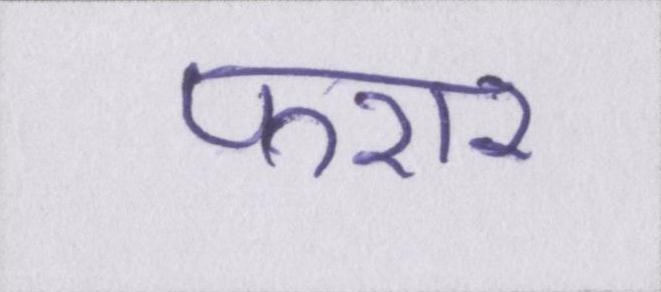 फरार